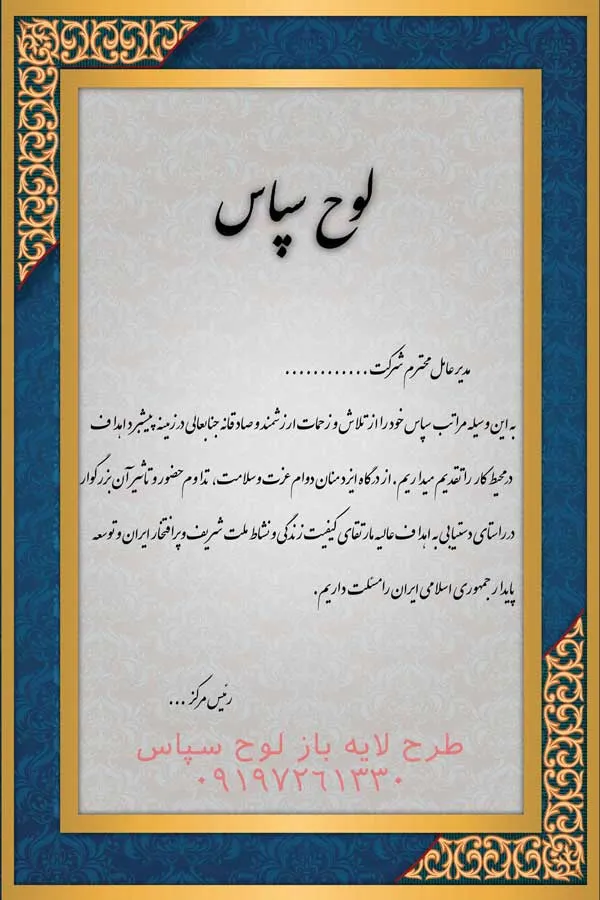 لوح سپاس
مدیر عامل محترم شرکت............
به این وسیله مراتب سپاس خود را از تلاش و زحمات ارزشمند و صادقانه جنابعالی در زمینه پیشبرد اهداف
در محیط کار را تقدیم میداریم. از درگاه ایزد منان دوام عزت و سلامت، تداوم حضور و تاثیر آن بزرگوار
در راستای دستیابی به اهداف عالیه مارتقای کیفیت زندگی و نشاط ملت شریف و پر افتخار ایران و توسعه
پایدار جمهوری اسلامی ایران را مسئلت داریم.
رئیس مرکز ...
طرح لایه باز لوح سپاس
۰۹۱۹۷۲۶۱۳۳۰